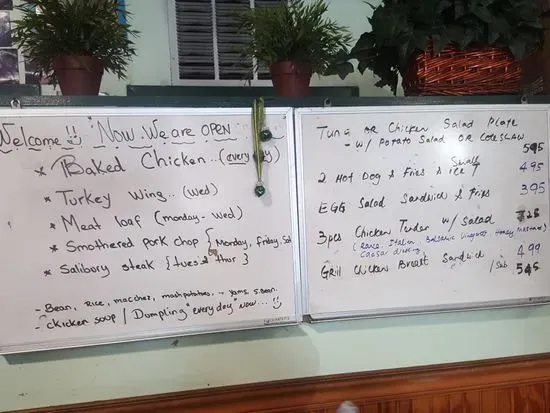 Welcome !! "Now We are OPEN
* Baked Chicken..(every day)
* Turkey wing..(wed)
* Meat loaf (monday - wed)
* Smothered pork chop {Monday, friday, Sat
* Salibory steak {tues & thur}
- Bean, Rice, mac chez, mashpotatoes, - yams, S.bean.
- chicken soup / Dumpling "every day" now...!!
Tuna OR Chicken Salad Plate
- w/ Potato Salad OR Coleslaw
595
2 Hot Dog & Fries & Small ice T 495
EGG Salad Sandwich & Fries 395
3pcs Chicken Tender w/ Salad
(Ranc, Italian, Balsamic Vinegrett Honey Mustard)
Caesar
Grill Chicken Breast Sandwich 499
/ Sub 545